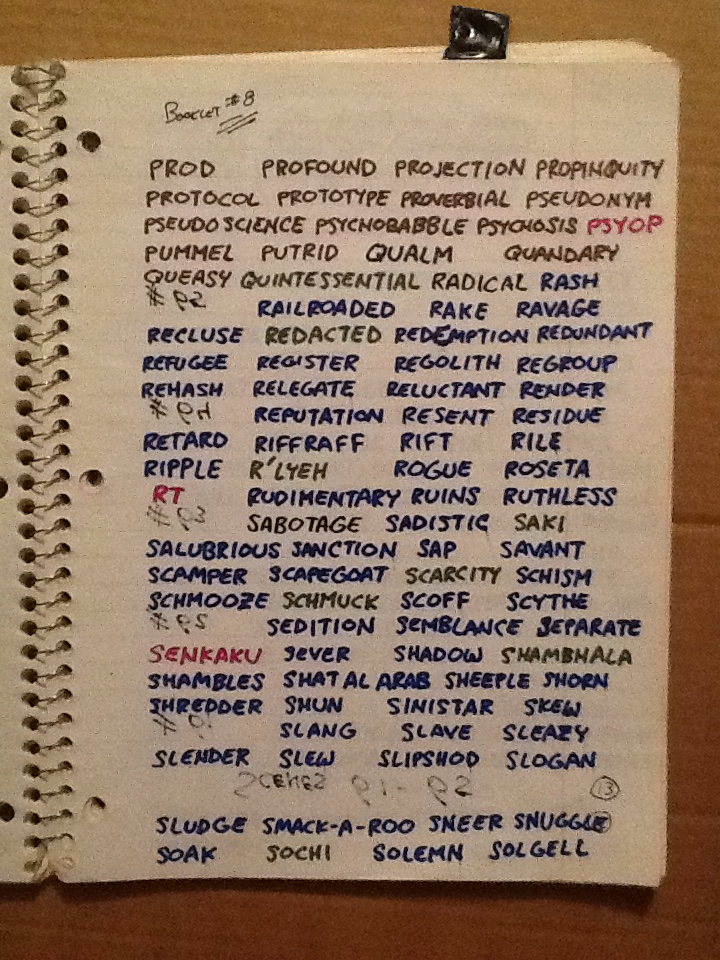 Booklet #8
PROD PROFOUND PROJECTION PROPINQUITY
PROTOCOL PROTOTYPE PROVERBIAL PSEUDONYM
PSEUDOSCIENCE PSYCHOBABBLE PSYCHOSIS PSYOP
PUMMEL PUTRID QUALM QUANDARY
QUEASY QUINTESSENTIAL RADICAL RASH
RAILROADED RAKE RAVAGE
RECLUSE REDACTED REDEMPTION REDUNDANT
REFUGEE REGISTER REGOLITH REGROUP
REHASH RELEGATE RELUCTANT RENDER
REPUTATION RESENT RESIDUE
RETARD RIFFRAFF RIFT RILE
RIPPLE R'LYEH ROGUE ROSETA
RT RUDIMENTARY RUINS RUTHLESS
SABOTAGE SADISTIC SAKI
SALUBRIOUS SANCTION SAP SAVANT
SCAMPER SCAPEGOAT SCARCITY SCHISM
SCHMOOZE SCHMUCK SCOFF SCYTHE
SEDITION SEMBLANCE SEPARATE
SENKAKU SEVER SHADOW SHAMBHALA
SHAMBLES SHAT AL ARAB SHEEPLE SHORN
SHREDDER SHUN SINISTAR SKEW
SLANG SLAVE SLEAZY
SLENDER SLEW SLIPSHOD SLOGAN
13
SLUDGE SMACK-A-ROO SNEER SNUGGLE
SOAK SOCHI SOLEMN SOLGELL